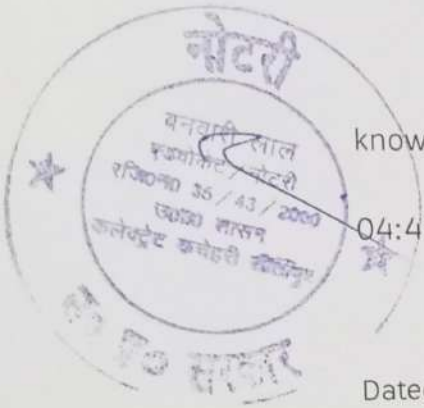 नोटरी
बनवारी लाल
एडवोकेट / नोटरी
रजि0न0 35 / 43 / 2000
उ0प्र0 शासन
कलेक्ट्रेट कचेहरी
सरकार
know
04:4
Date